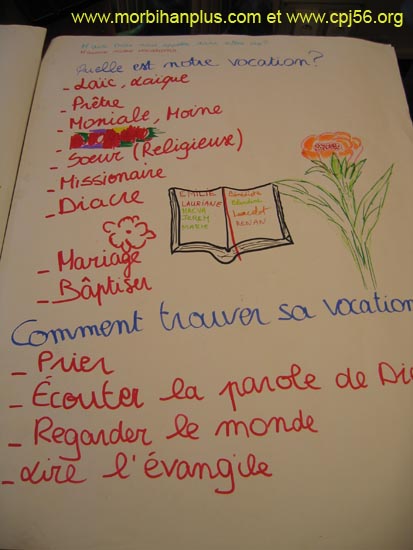 www.morbihanplus.com et www.cpj56.org
Quelle est notre vocation?
- Laïc, Laïque
- Prêtre
- Moniale, Moine
- Soeur (Religieuse)
- Missionaire
- Diacre
- Mariage
- Bâptiser
EMILIE
LAURIANE
MAEVA
JEREM
MARIE
Lancelot
RENAN
Comment trouver sa vocation
- Prier
- Écouter la parole de Die
- Regarder le monde
- Lire l'évangile